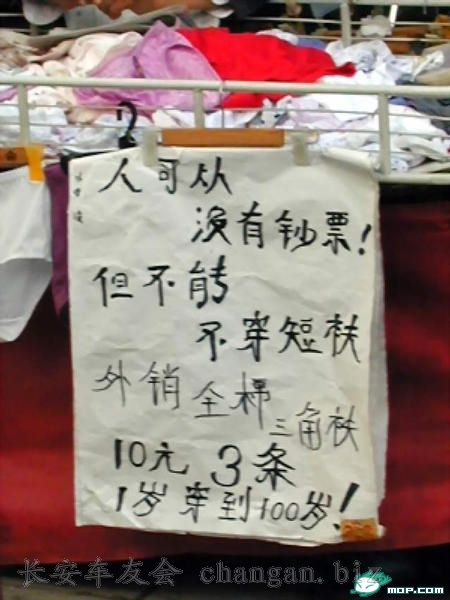 人可从
没有钞票!
但不能
不穿短袂
外销全棉
三角袂
10元3条
1岁穿到100岁!
长安车友会 changan.biz
MOP.COM